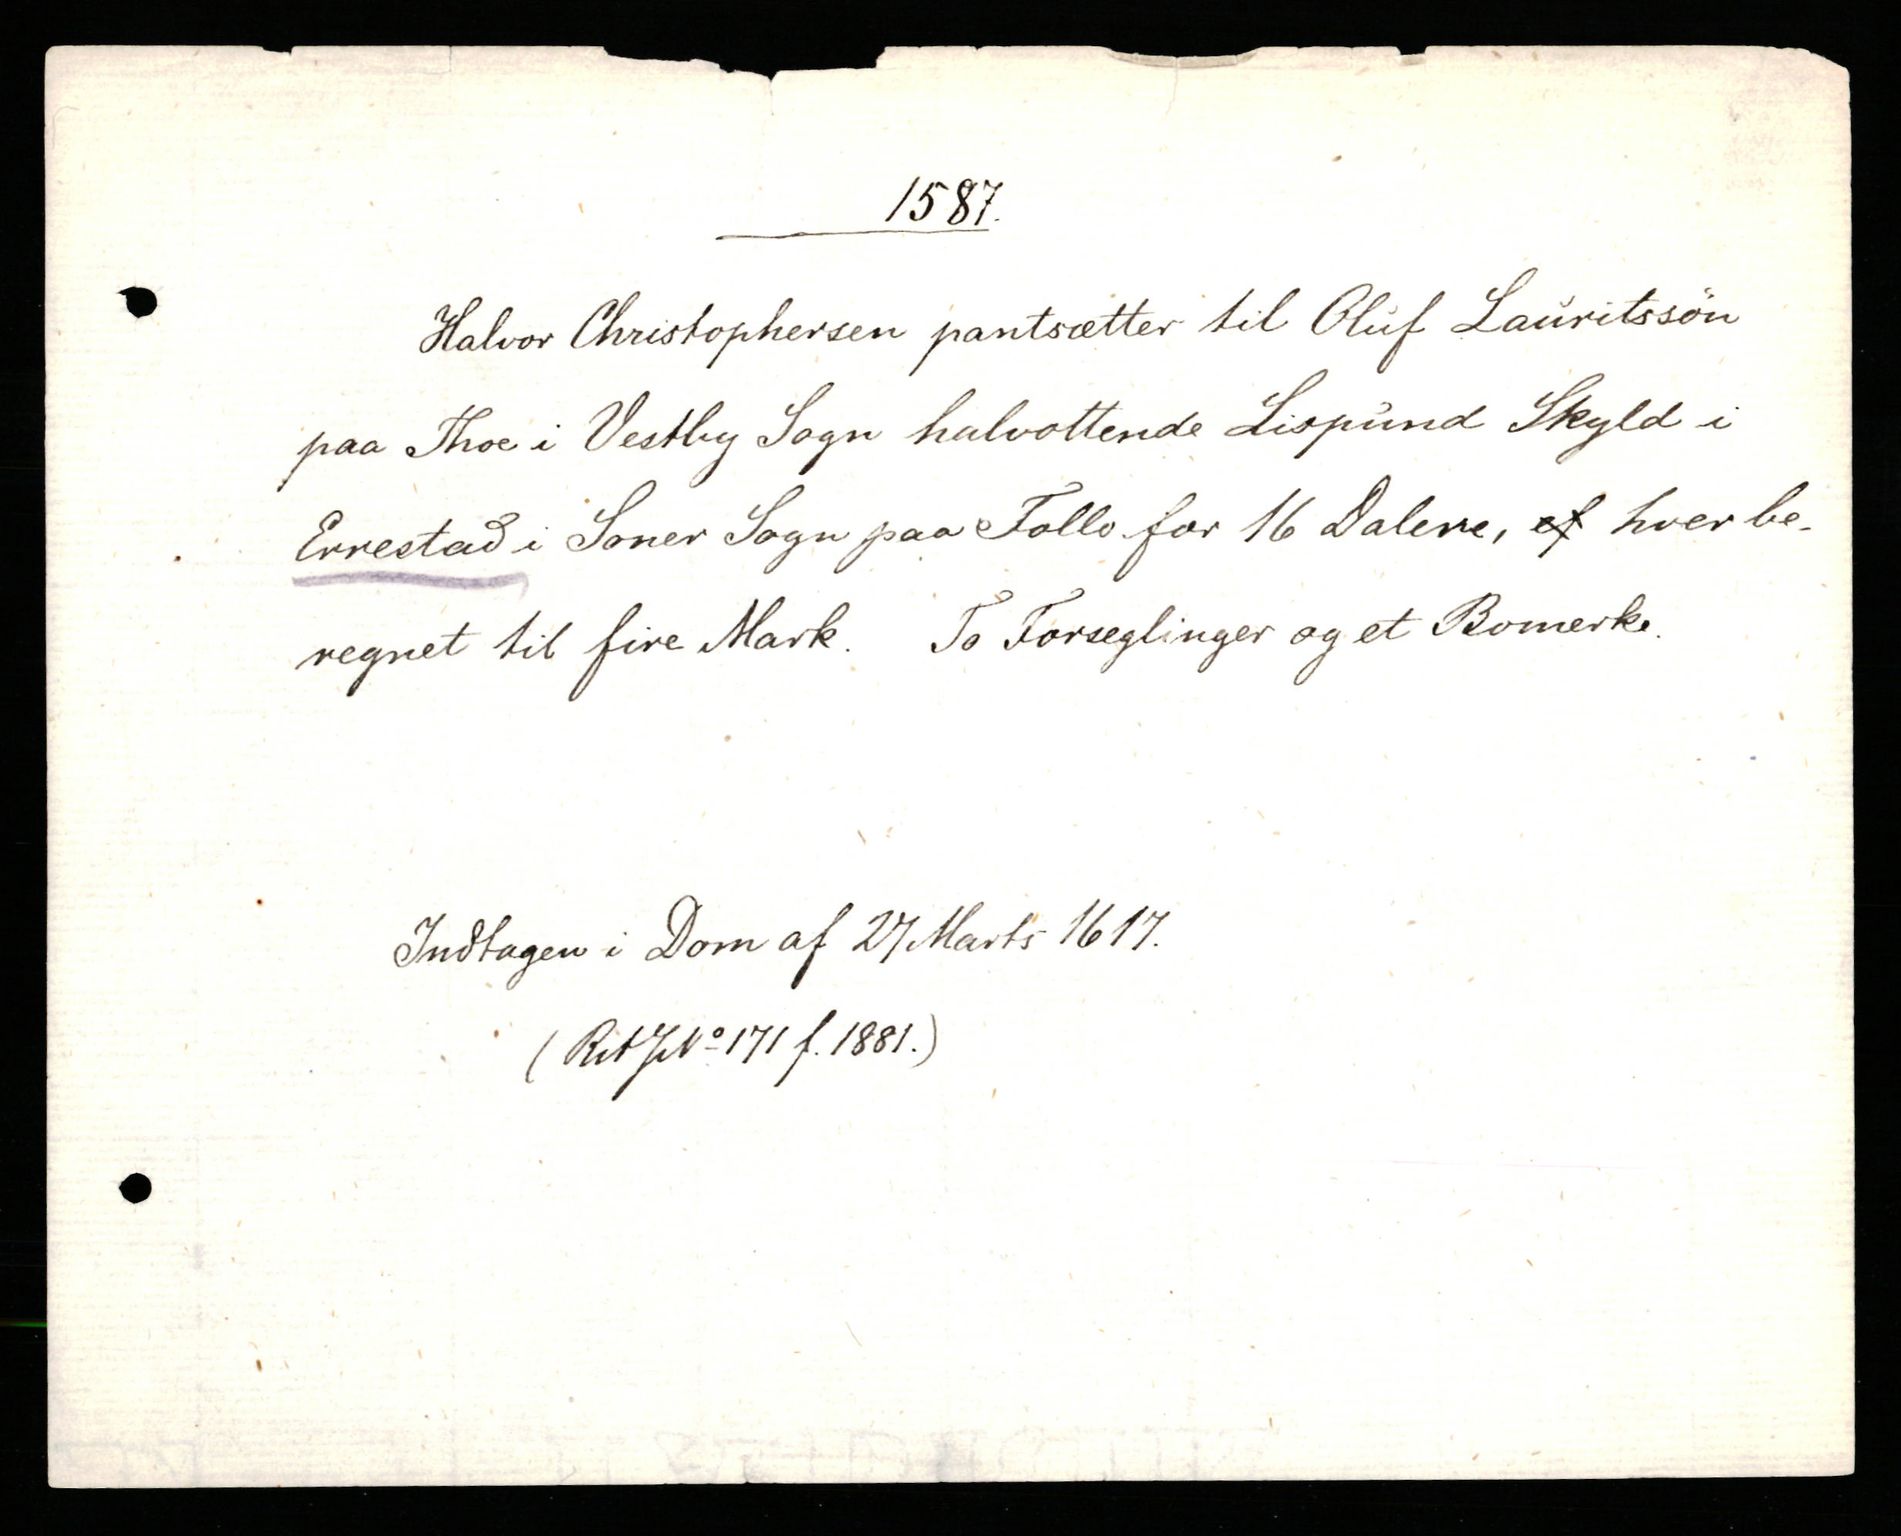 1587.
Halvor Christophersen pantsætter til Oluf Lauritssön
paa Thoe i Vestby Sogn halvottende Lispund Skyld i
Errestad i Soner Sogn paa Follo for 16 Dalere, af hver be-
regnet til fire Mark. To Forseglinger og et Bomerke.
Indtagen i Dom af 27 Marts 1617.
(RA J No 171 f. 1881.)